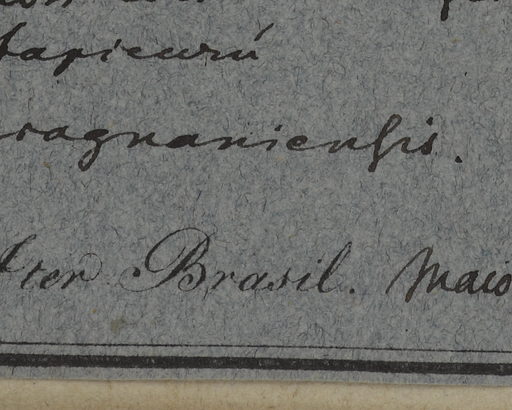 tapicurú
ragnaniensis.
Iter Brasil. Maio